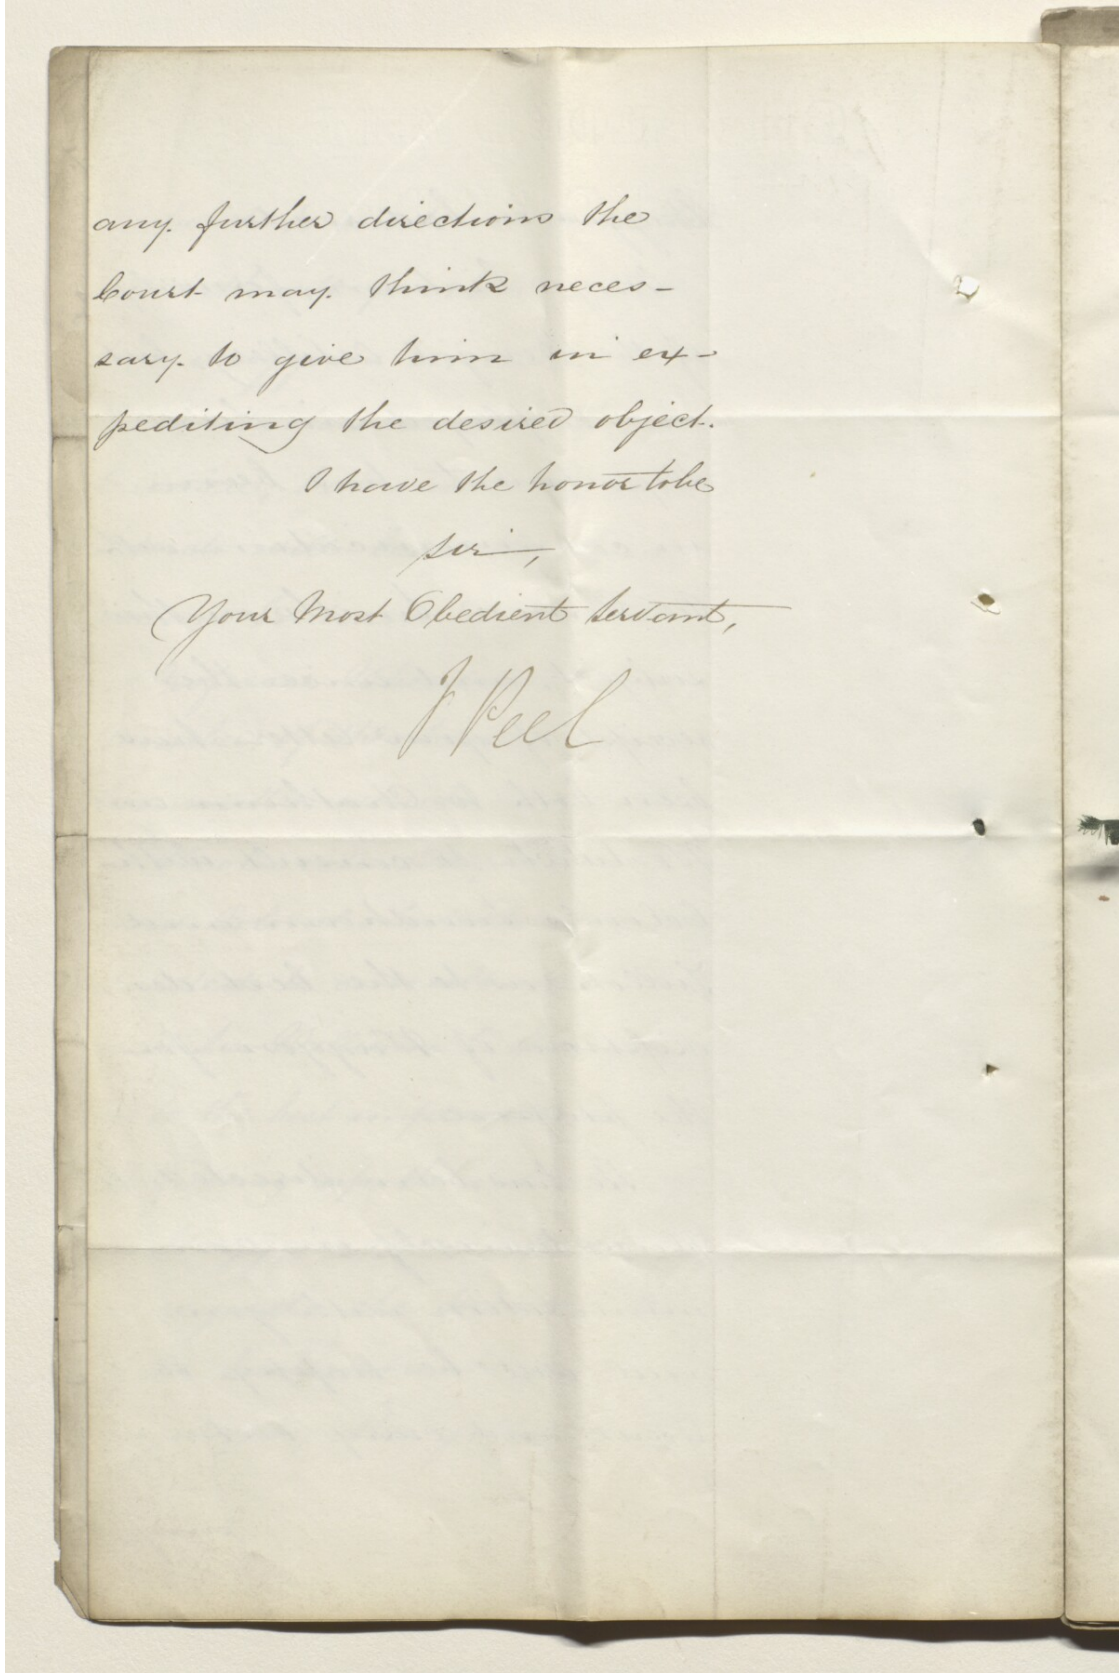 any further directions the
Court may think neces-
sary to give him in ex-
pediting the desired object.
I have the honor to be
Sir,
Your Most Obedient Servant,
J Peel